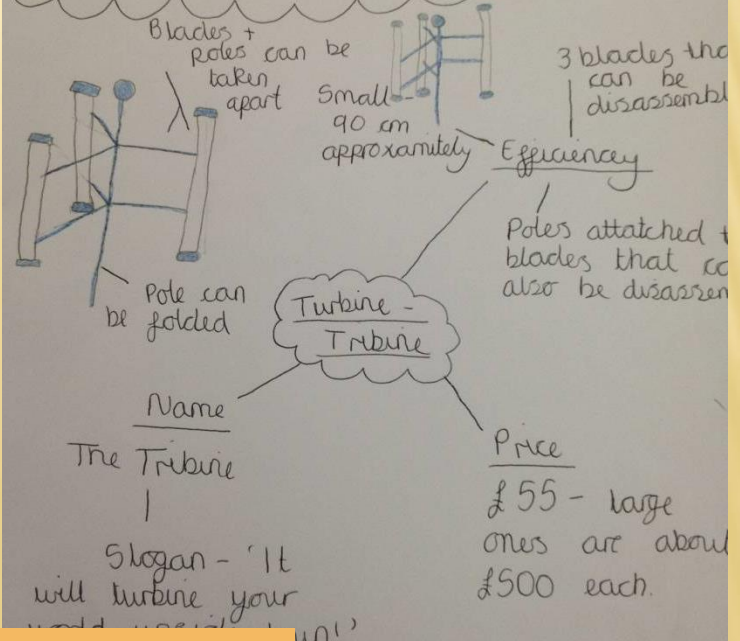 Blades +
Poles can be
taken
apart
Small -
90 cm
approxamitely
3 blades tha
can be
disassembl
Efficiency
Poles attatched t
blades that co
also be disassem
Pole can
be folded
Turbine -
Tribine
Name
The Tribine
Slogan - 'It
will turbine your
Price
£55 - large
ones are about
£500 each.